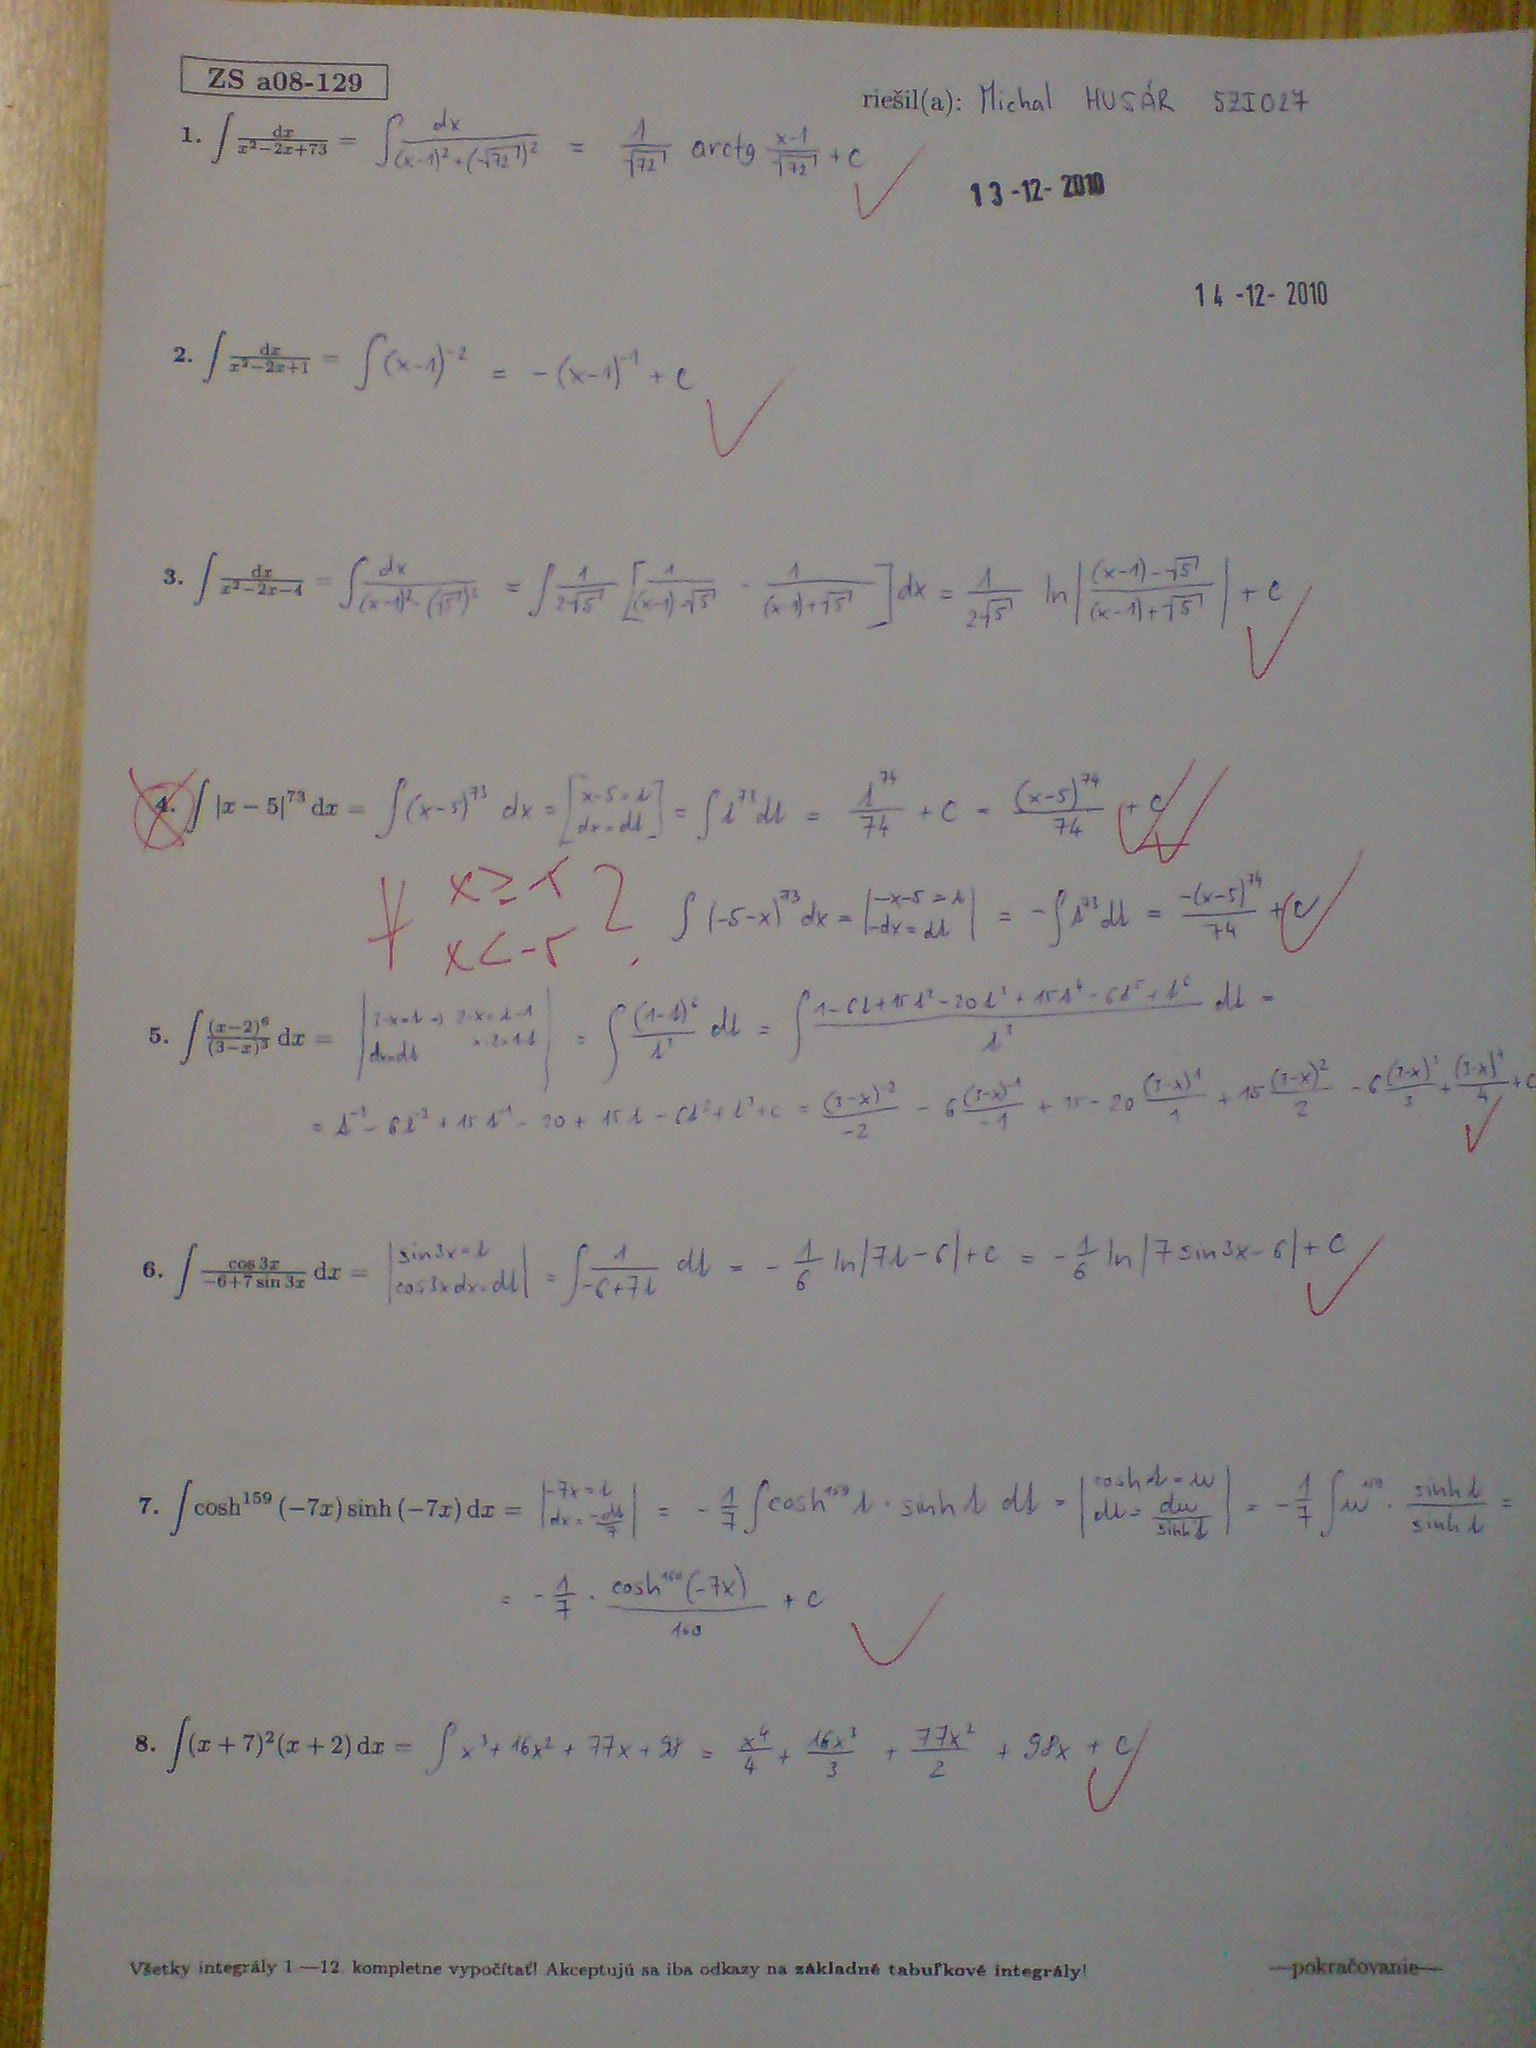 ZS a08-129
riešil(a): Michal HUSÁR 5ZI027
1. ∫ dx/(x²−2x+73) = ∫ dx/((x−1)²+(√72)²) = 1/√72 arctg (x−1)/√72 + c
13-12-2010
14-12-2010
2. ∫ dx/(x²−2x+1) = ∫ (x−1)⁻² = −(x−1)⁻¹ + c
3. ∫ dx/(x²−2x−4) = ∫ dx/((x−1)²−(√5)²) = ∫ 1/(2√5) [1/((x−1)−√5) − 1/((x−1)+√5)] dx = 1/(2√5) ln|((x−1)−√5)/((x−1)+√5)| + c
4. ∫ |x − 5|⁷³ dx = ∫ (x−5)⁷³ dx = [x−5=t dx=dt] = ∫ t⁷³ dt = t⁷⁴/74 + c = (x−5)⁷⁴/74 + c
x ≥ 5
x < −5 ?
∫ (−5−x)⁷³ dx = |−x−5=t −dx=dt| = −∫ t⁷³ dt = −(x−5)⁷⁴/74 + c
5. ∫ (x−2)⁶/(3−x)³ dx = = ∫ (1−t)⁶/t³ dt = ∫ (1−6t+15t²−20t³+15t⁴−6t⁵+t⁶)/t³ dt =
= t⁻³ − 6t⁻² + 15t⁻¹ − 20 + 15t − 6t² + t³ + c = (3−x)⁻²/−2 − 6 (3−x)⁻¹/−1 + 15 − 20 (3−x)¹/1 + 15 (3−x)²/2 − 6 (3−x)³/3 + (3−x)⁴/4 + c
6. ∫ cos 3x/(−6+7 sin 3x) dx = |sin3x=t cos3xdx=dt| = ∫ 1/(−6+7t) dt = −1/6 ln|7t−6|+c = −1/6 ln|7sin3x−6|+c
7. ∫ cosh¹⁵⁹ (−7x) sinh (−7x) dx = |−7x=t dx=−dt/7| = −1/7 ∫ cosh¹⁵⁹ t · sinh t dt = |cosh t=u dt=du/sinh t| = −1/7 ∫ u¹⁵⁹ · sinh t/sinh t =
= −1/7 · cosh¹⁶⁰(−7x)/160 + c
8. ∫(x + 7)²(x + 2) dx = ∫ x³ + 16x² + 77x + 98 = x⁴/4 + 16x³/3 + 77x²/2 + 98x + c
Všetky integrály 1 —12 kompletne vypočítať! Akceptujú sa iba odkazy na základné tabuľkové integrály!
—pokračovanie—